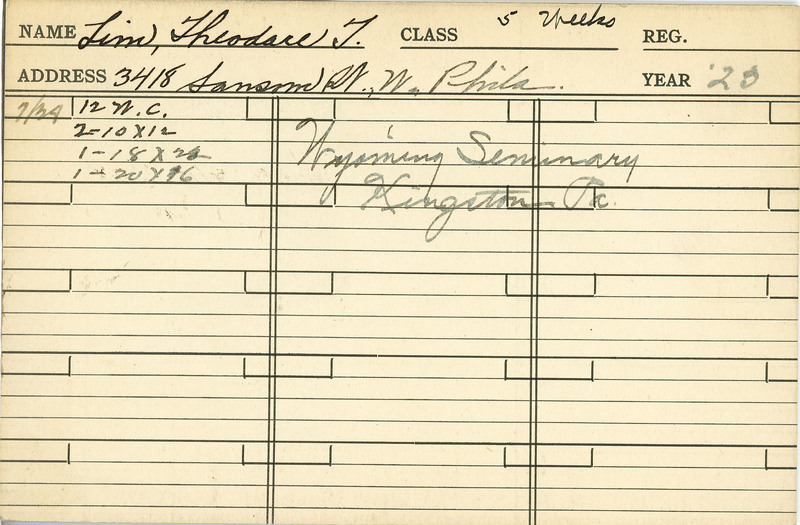 NAME Lim, Theodore T. CLASS 5 Weeks REG.
ADDRESS 3418 Sansom St., W. Phila. YEAR '23
7/24 12 W.C.
2-10 X 12
1-18 X 22
1-20 X 16
Wyoming Seminary
Kingston Pa.